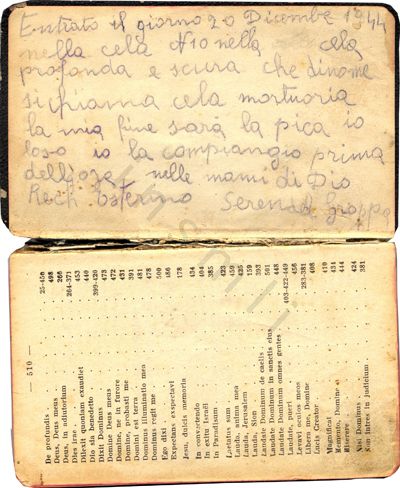 Entrato il giorno 20 Dicembre 1944
nella cela N10 nella cela
profonda e scura che dinome
si chiama cela mortuoria
la mia fine sarà la pica io
loso io la compiangio prima
dell'ora nelle mami di Dio
Rech Esterino Seren d Grappa
— 510 —
De profundis 25-450
Deus, Deus meus 498
Deus, in adiutorium 266
Dies irae 264-371
Dilexit quoniam exaudiet 453
Dio sia benedetto 440
Dixit Dominus 399-420
Domine Deus meus 473
Domine, ne in furore 472
Domine, probasti me 431
Domini est terra 391
Dominus illuminatio mea 481
Dominus regit me 478
Ego dixi 500
Expectans exspectavi 486
Jesu, dulcis memoria 178
In convertendo 434
In exitu Israël 404
In Paradisum 385
Laetatus sum 423
Lauda, anima mea 459
Lauda, Jerusalem 425
Lauda, Sion 159
Laudate Dominum de caelis 393
Laudate Dominum in sanctis eius 501
Laudate Dominum omnes gentes 448
Laudate, pueri 403-422-449
Levavi oculos meos 456
Libera me, Domine 283-381
Lucis Creator 408
Magnificat 410
Memento, Domine 431
Miserere 444
Nisi Dominus 424
Non intres in judicium 381